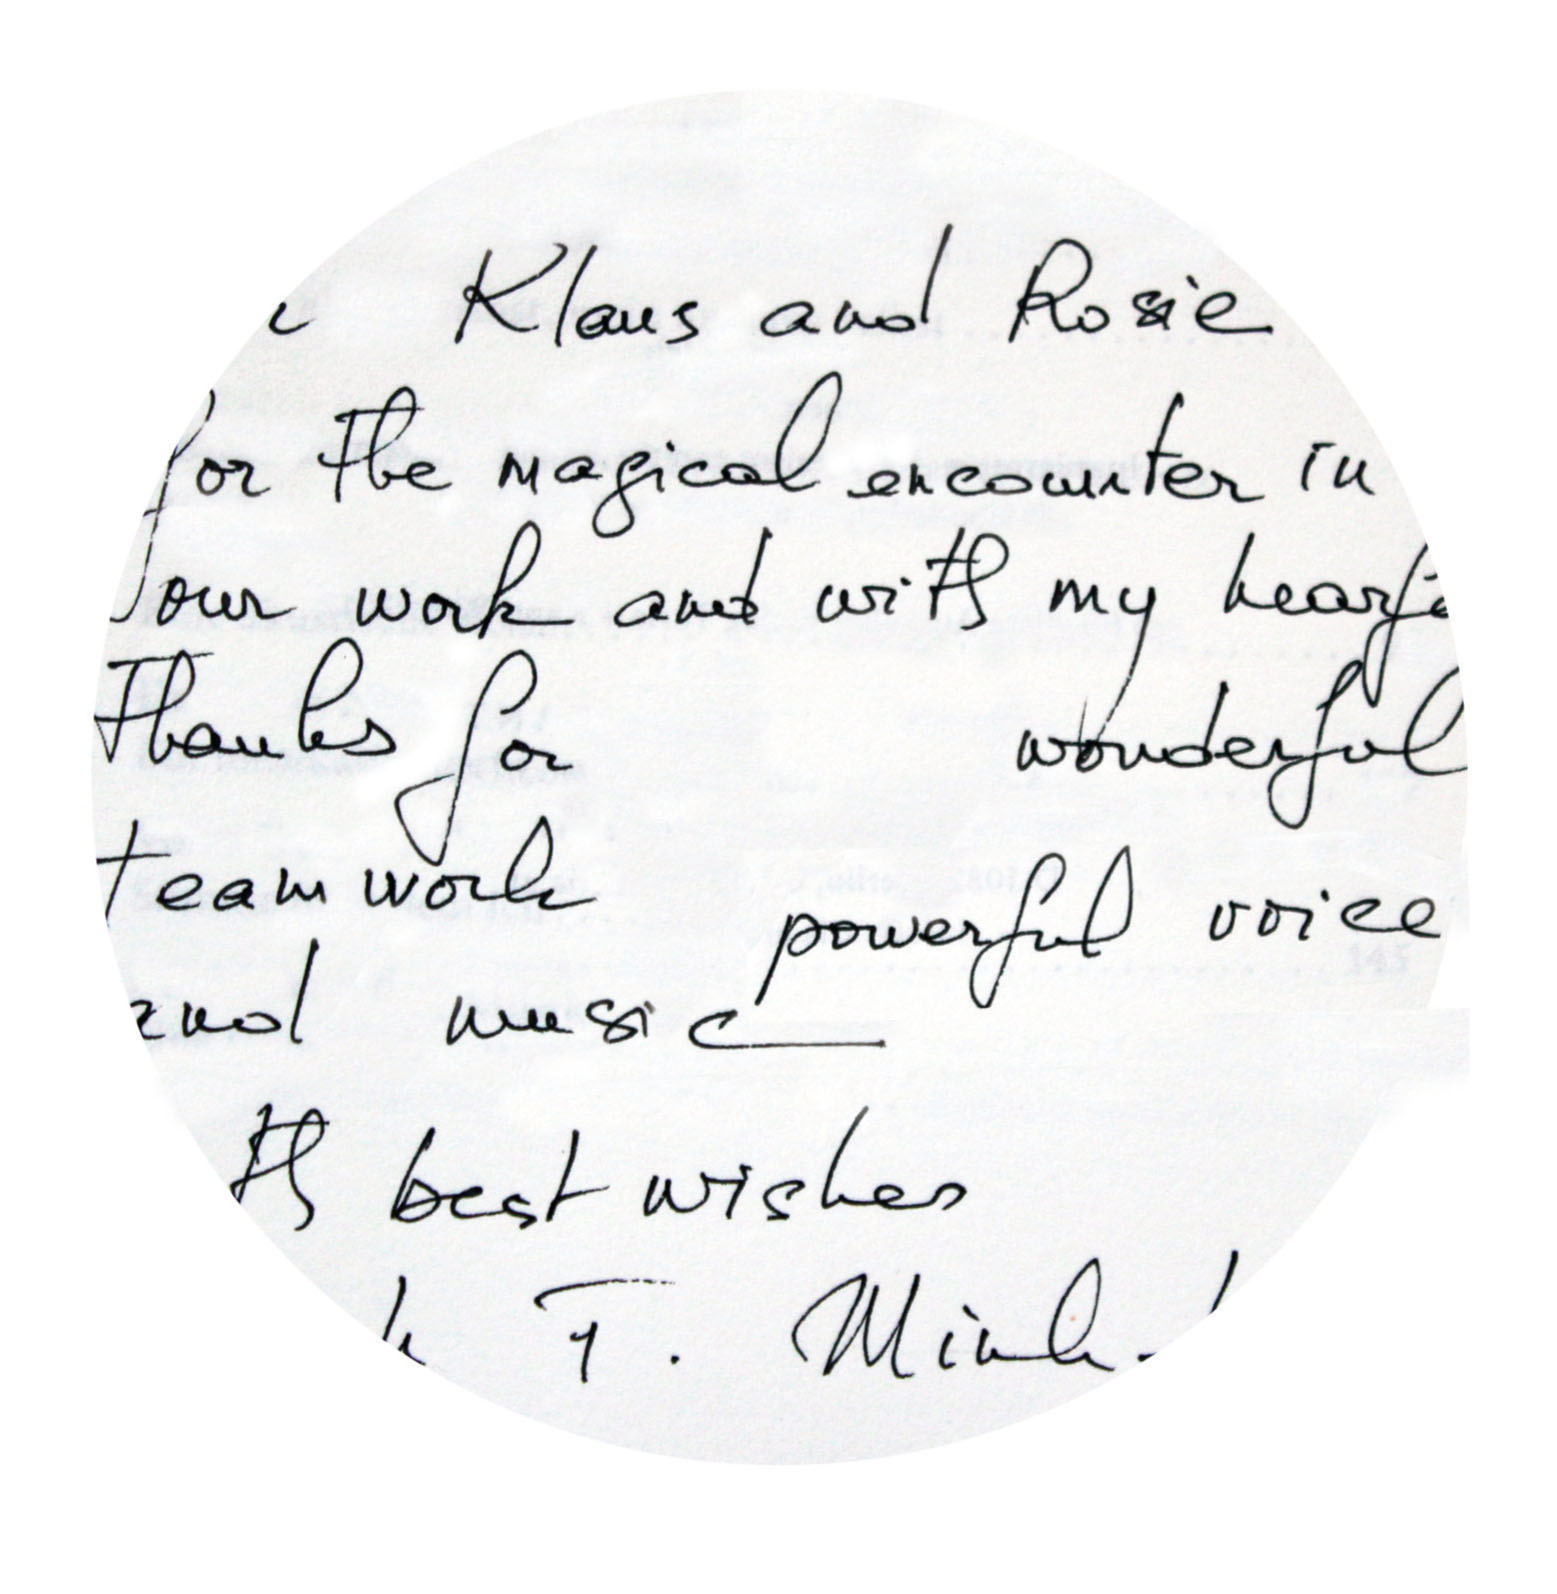 Klaus and Rosie
for the magical encounter in
our work and with my hearf
Thanks for wonderful
teamwork powerful voice
and music
th best wishes
T. Minh.